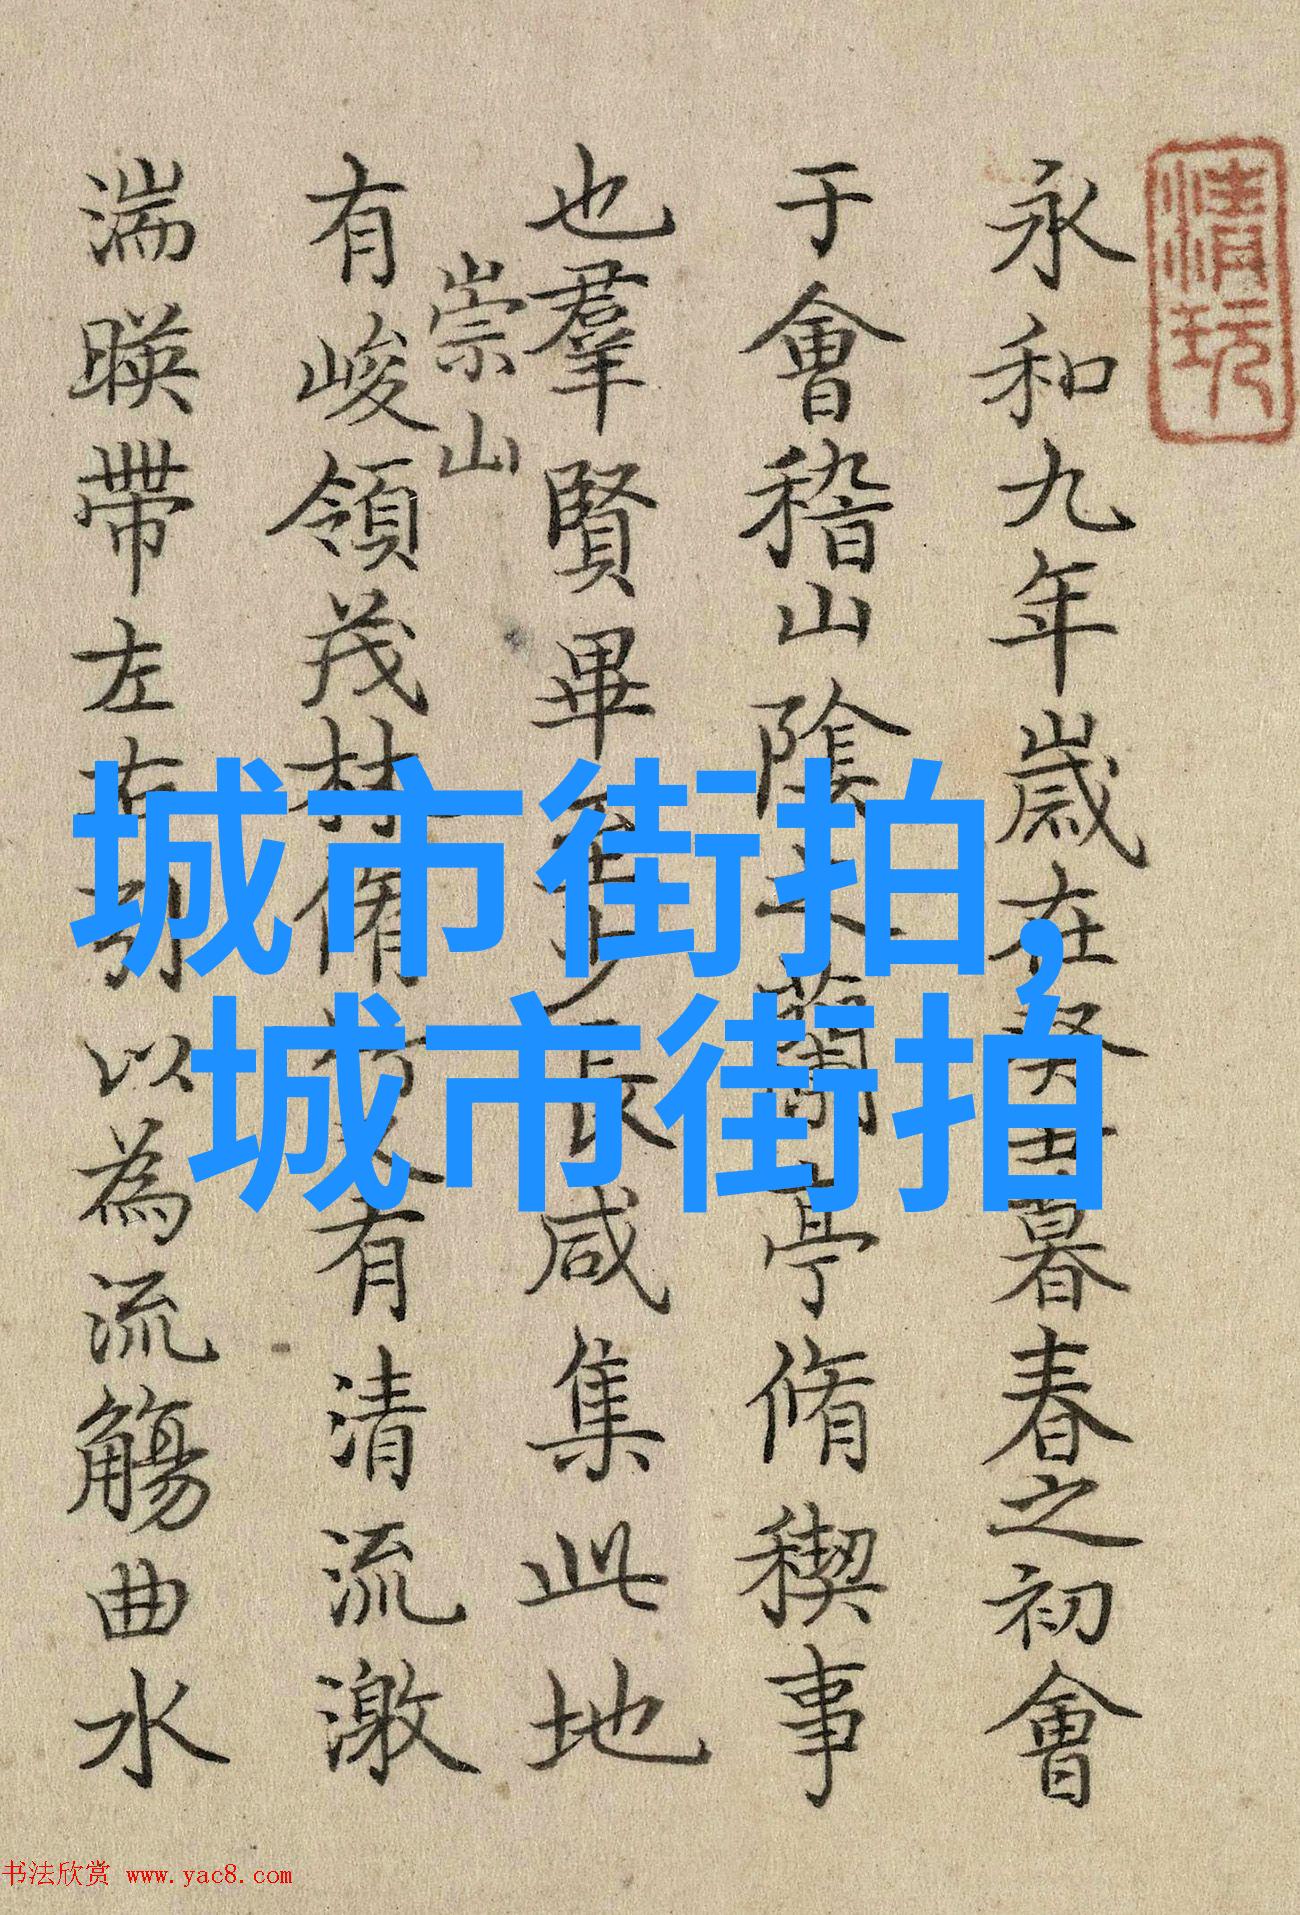 清玩
永和九年歲在癸丑暮春之初會
于會稽山陰之蘭亭脩稧事
也羣賢畢至少長咸集此地
崇山
有峻領茂林脩竹又有清流激
湍暎帶左右引以為流觴曲水
城市街拍,
城市街拍
书法欣赏 www.yac8.com